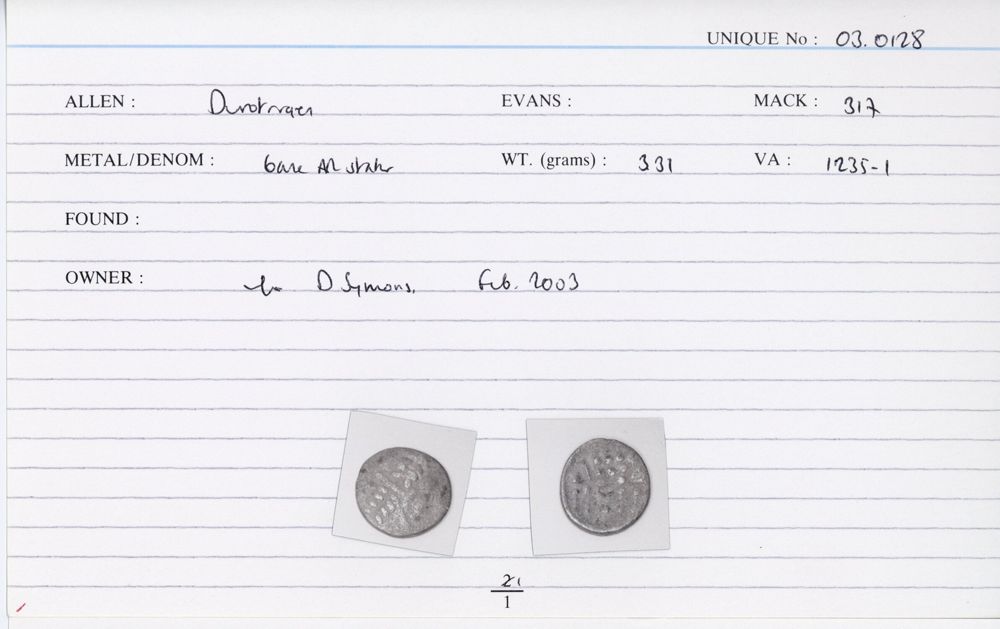 UNIQUE No : 03.0128
ALLEN : Durotriges EVANS : MACK : 317
METAL/DENOM : base AR stater WT. (grams) : 331 VA : 1235-1
FOUND :
OWNER : D Symons. Feb. 2003
1